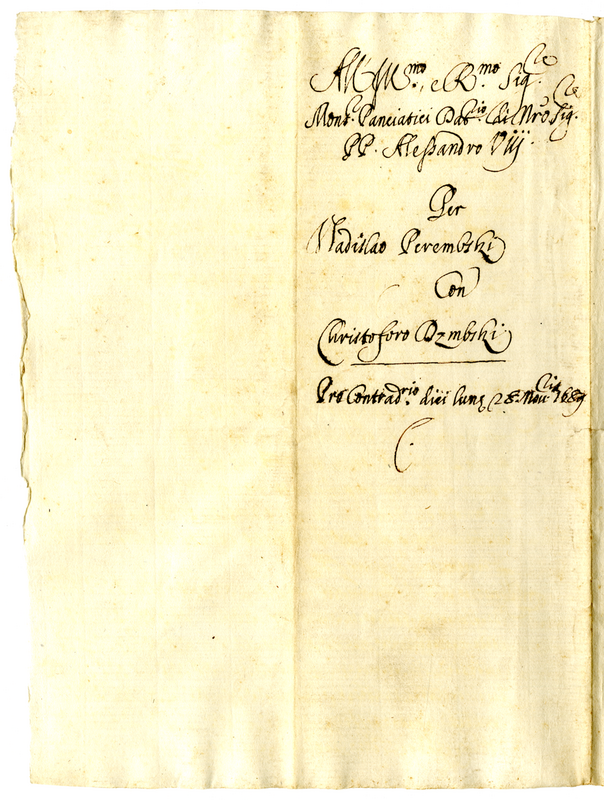 All Ill.mo, e R.mo Sig.re
Mons.r Panciatici Dat.rio di Nro Sig.re
PP. Alessandro VIIJ.
Per
Vladislao Perembski
Con
Christoforo Dzmbski.
Pro Contrad.rio diei lunę 28. Nov. 1689
C.